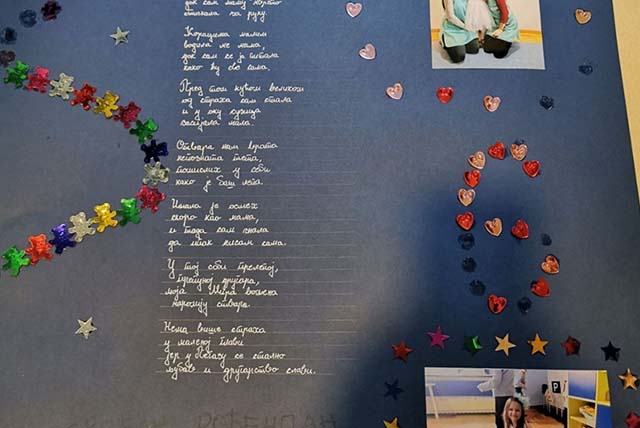 док сам маму чврсто
стискала за руку.
Корацима малим
водила ме мама,
док сам се ја питала
како ћу све сама.
Пред том кућом великом
од страха сам стала
и у оку сузица
засијала мала.
Отвара нам врата
непозната тета,
помислих у себи
како је баш лепа.
Имала је осмех
скоро као мама,
и тада сам знала
да нисам сама.
У тој соби прелепој,
препуној другара,
моја Мира вољена
чаролију ствара.
Нема више страха
у маленој глави
јер у Пегазу се стално
љубав и другарство слави.